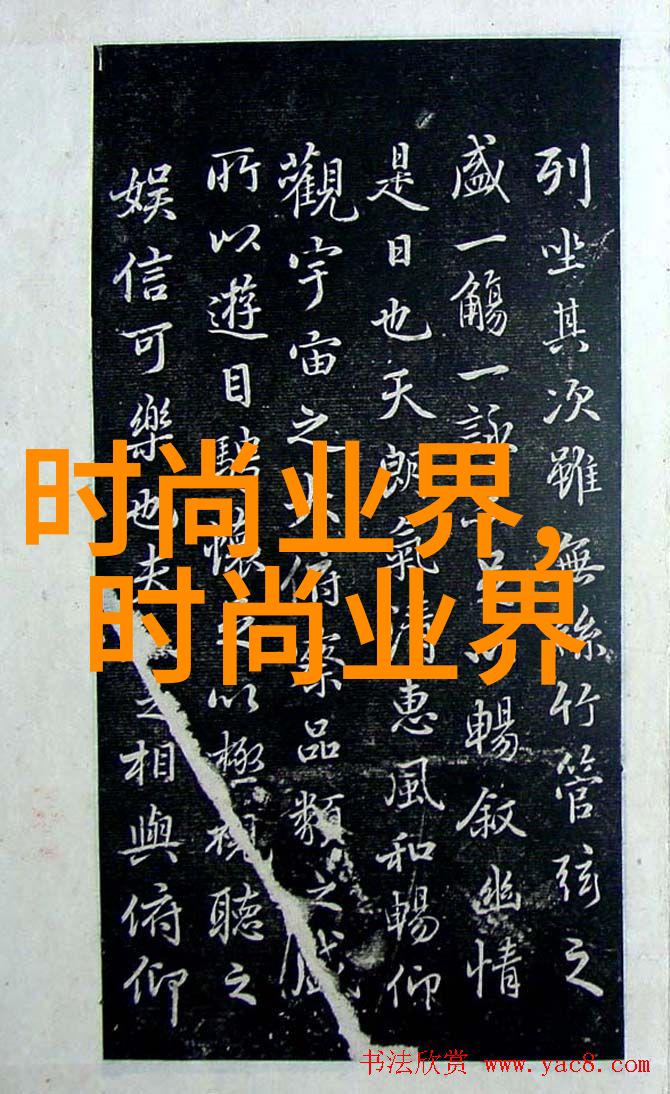 列坐其次雖無絲竹管弦之
盛一觴一詠亦足以暢叙幽情
是日也天朗氣清惠風和暢仰
觀宇宙之大俯察品類之盛
所以遊目騁懷足以極視聽之
娛信可樂也夫之相與俯仰
时尚业界,
时尚业界
书法欣赏 www.yac8.com